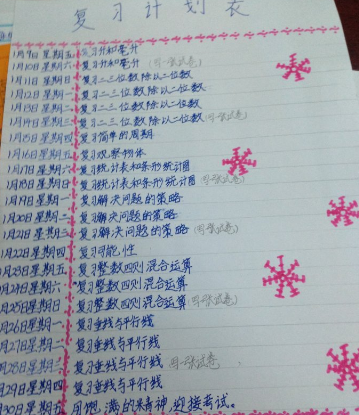 复习计划表
1月9日 星期五 复习升和毫升
1月10日 星期六 复习升和毫升 (写一张试卷)
1月11日 星期日 复习二三位数除以二位数
1月12日 星期一 复习二三位数除以二位数
1月13日 星期二 复习二三位数除以二位数
1月14日 星期三 复习二三位数除以二位数 (写一张试卷)
1月15日 星期四 复习简单的周期
1月16日 星期五 复习观察物体
1月17日 星期六 复习统计表和条形统计图
1月18日 星期日 复习统计表和条形统计图 (写一张试卷)
1月19日 星期一 复习解决问题的策略
1月20日 星期二 复习解决问题的策略
1月21日 星期三 复习解决问题的策略 (写一张试卷)
1月22日 星期四 复习可能性
1月23日 星期五 复习整数四则混合运算
1月24日 星期六 复习整数四则混合运算
1月25日 星期日 复习整数四则混合运算 (写一张试卷)
1月26日 星期一 复习垂线与平行线
1月27日 星期二 复习垂线与平行线
1月28日 星期三 复习垂线与平行线 (写一张试卷)
1月29日 星期四 复习垂线与平行线
1月30日 星期五 用饱满的精神迎接考试。